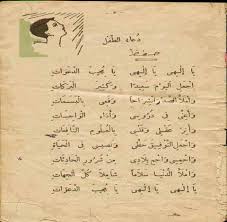 دعاء الطفل
يا إلهي يا إلهي يا مجيب الدعوات
اجعل اليوم سعيدا وكثير البركات
واملأ الصدر انشراحا وفمي بالبسمات
وأعني في دروسي وأداء الواجبات
وأنر عقلي وقلبي بالعلوم النافعات
واجعل التوفيق حظي ونصيبي في الحياة
واحمني واحم بلادي من شرور الحادثات
واملأ الدنيا سلاما شاملا كل الجهات
يا إلهي يا إلهي يا مجيب الدعوات